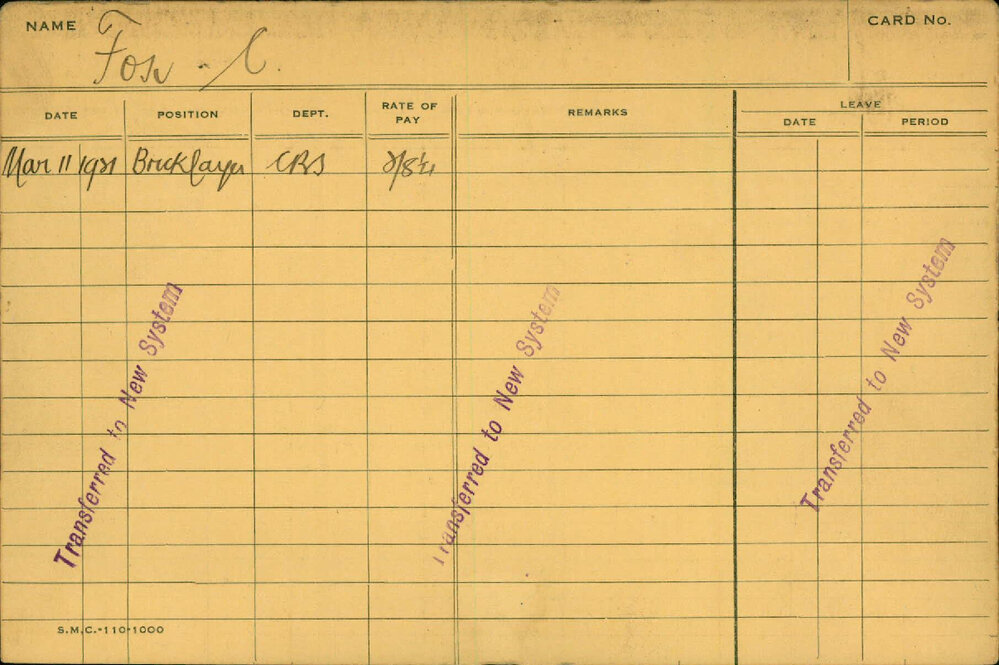 NAME Fox . C. CARD No.
DATE POSITION DEPT. RATE OF PAY REMARKS LEAVE
DATE PERIOD
Mar 11 1921 Bricklayer CRS
Transferred to New System
Transferred to New System
Transferred to New System
S.M.C.-110-1000